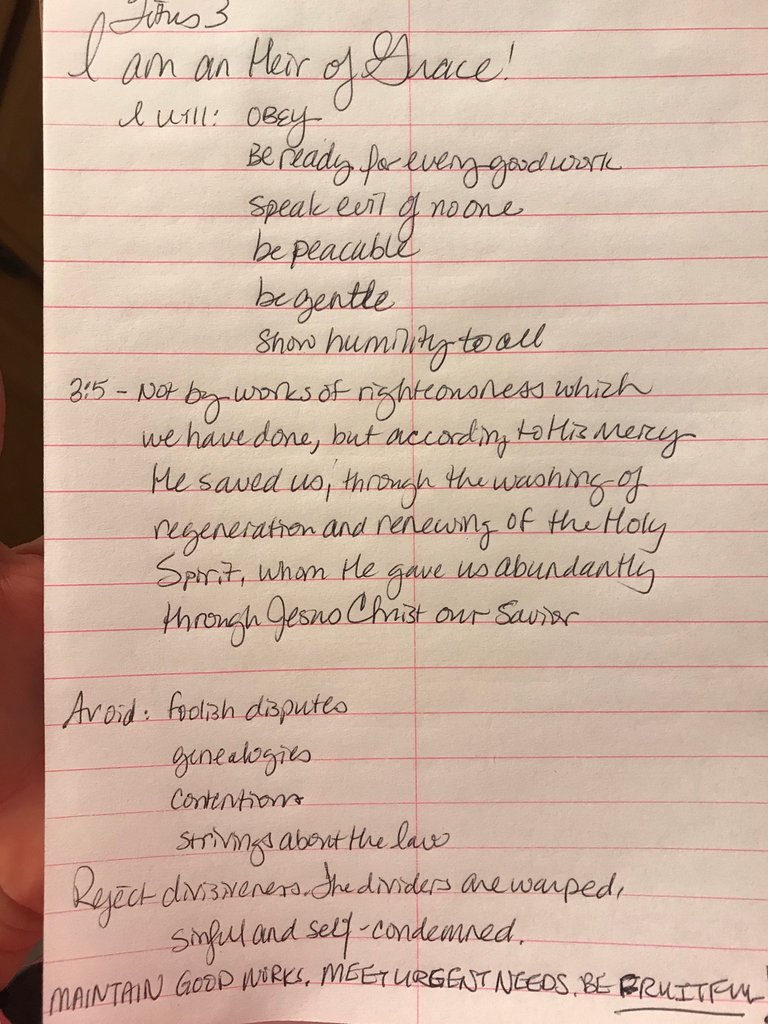 Titus 3
I am an Heir of Grace!
I will: OBEY
Be ready for every good work
speak evil of no one
be peacable
be gentle
show humility to all
3:5 - Not by works of righteousness which
we have done, but according to His Mercy
He saved us, through the washing of
regeneration and renewing of the Holy
Spirit, whom He gave us abundantly
through Jesus Christ our Savior
Avoid: foolish disputes
genealogies
contentions
strivings about the law
Reject divisiveness. The dividers are warped,
sinful and self-condemned.
MAINTAIN GOOD WORKS. MEET URGENT NEEDS. BE FRUITFUL!